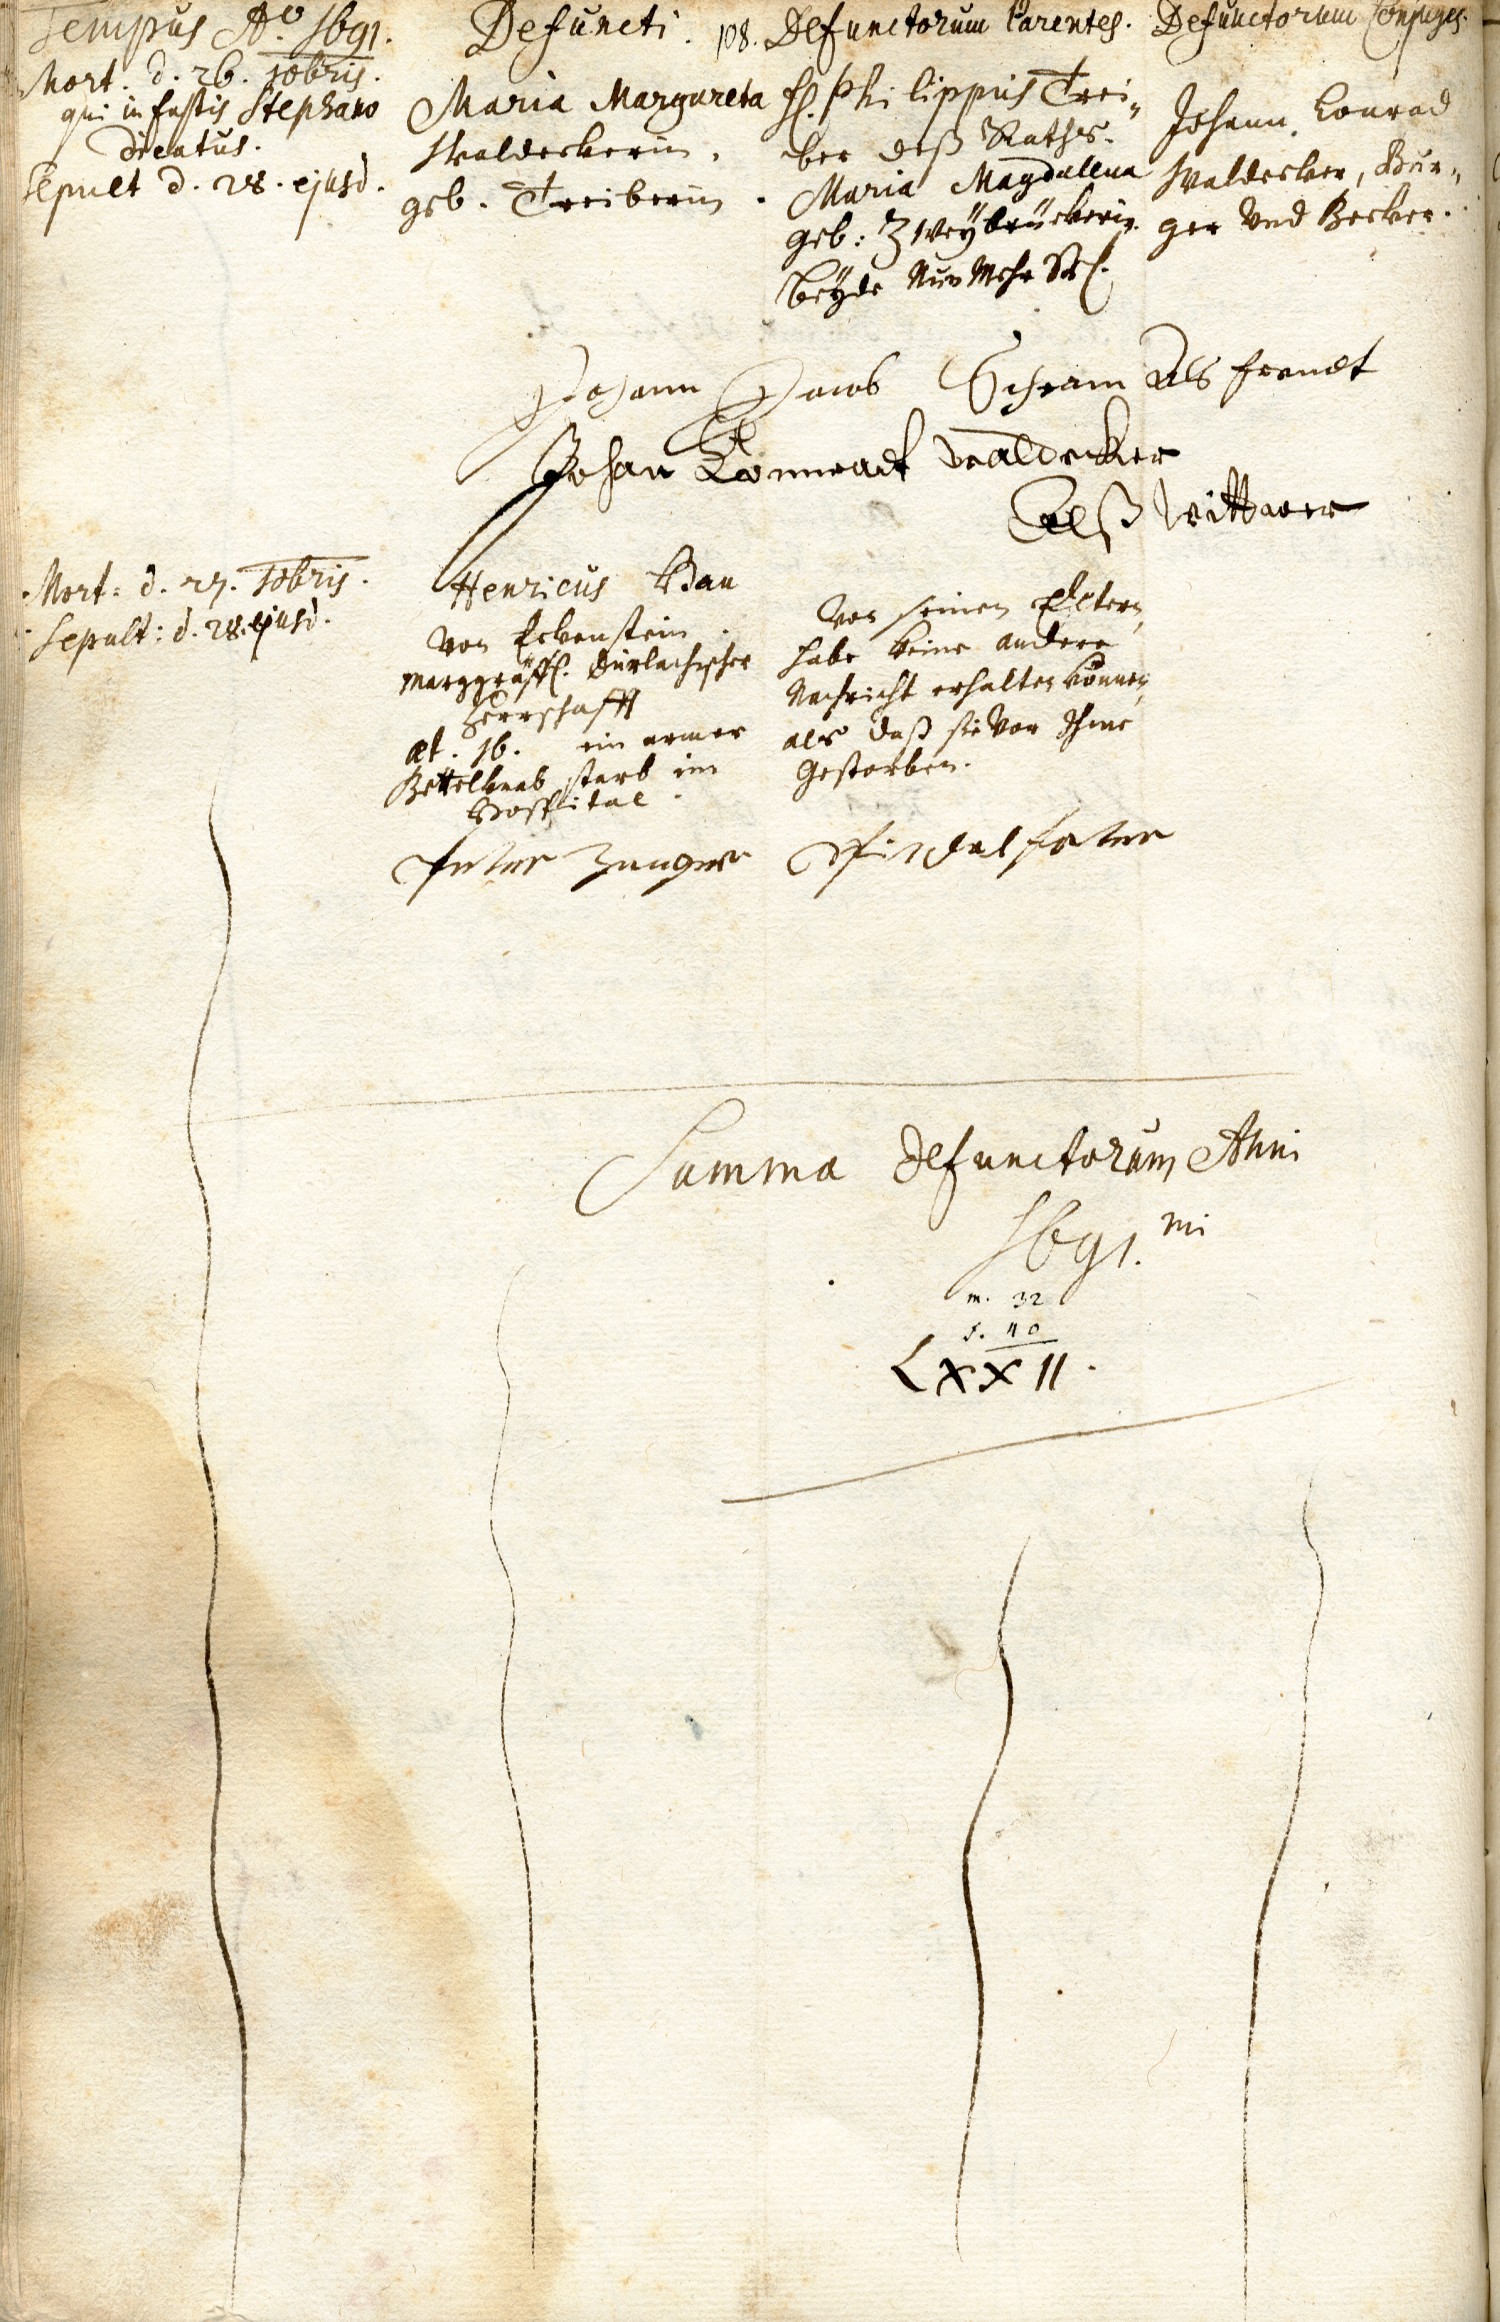 Tempus Aº 1691. Defuncti. 108. Defunctorum Parentes. Defunctorum Conjuges.
Mort. d. 26. 10bris.
qui in fastis Stephano
dicatus.
Sepult d. 28. ejusd.
Maria Margareta
Waldeckerin,
geb. Treiberin.
H. Philippus Trei„
ber deß Raths.
Maria Magdalena
geb: Zweybrückerin.
beyde Nun Mehr Sel.
Johann Conrad
Waldecker, Bur„
ger Und Becker.
Johann Jacob Schram Als frendt
Johan Conradt Waldecker
Alß Wittwer
Mort: d. 27. 10bris.
Sepult: d. 28. ejusd.
Henricus Bau
Von Eckenstein
Marggräffl. Durlachischer
Herrschafft
æt. 16. ein armer
Bettelknab starb im
Hospital.
Von seinen Eltern
habe keine andere
Nachricht erhalten können,
als daß sie Vor Ihme
Gestorben.
Peter Zunger Spidelfater
Summa Defunctorum Anni
1691.mi
m. 32
f. 40
LXXII.